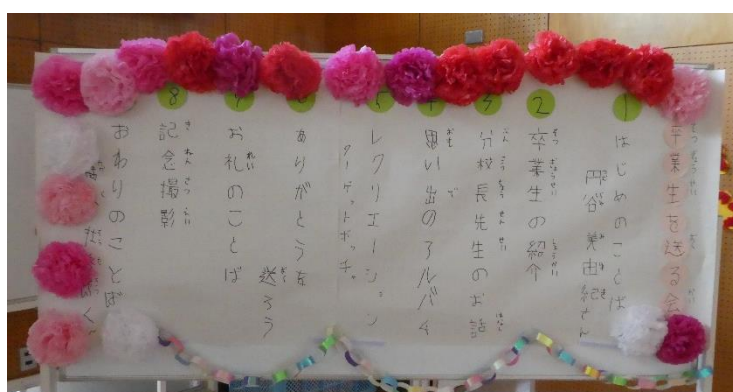 卒業生を送る会
1 はじめのことば
美由紀さん
2 卒業生の紹介
3 分校長先生のお話
4 思い出のアルバム
5 レクリエーション
ターゲットボッチャ
ありがとうを
送ろう
7 お礼のことば
8 記念撮影
おわりのことば
くん